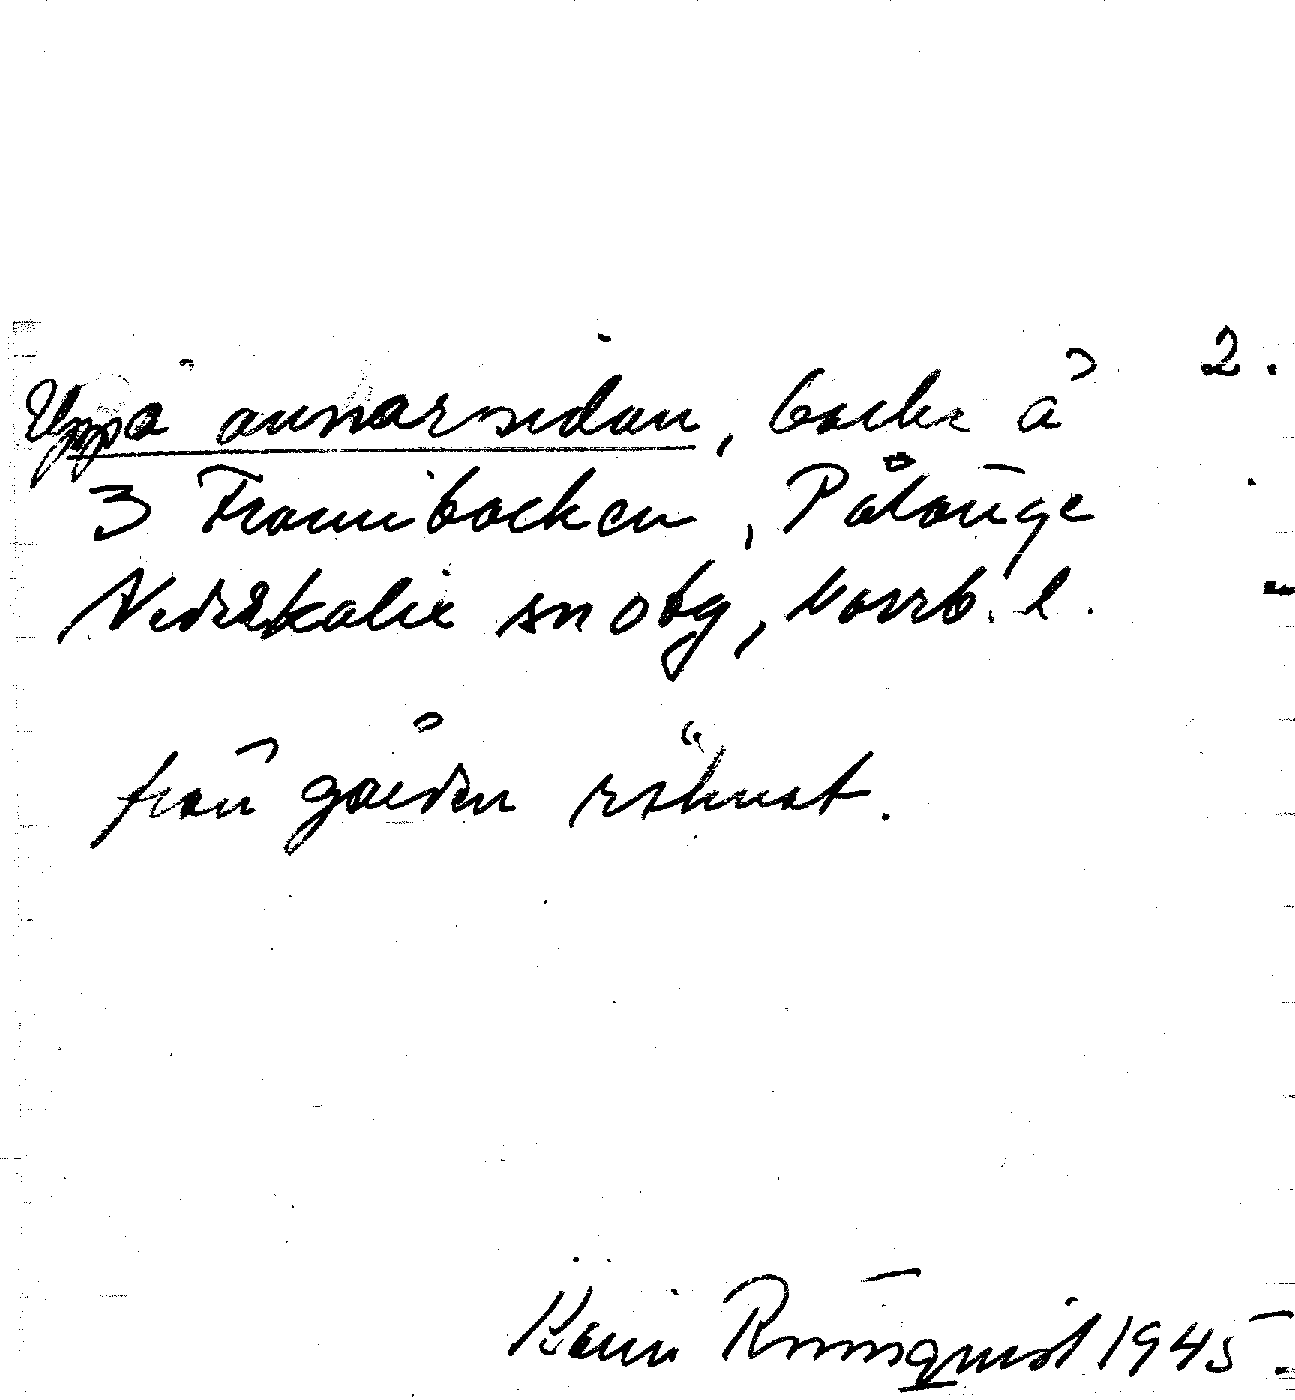 2.
Uppå annarsidan, backe å
3 Frannibacken, Pålänge
Nederkalix sn obg, Norrb. l.
från gården räknat.
Karin Rönnquist 1945